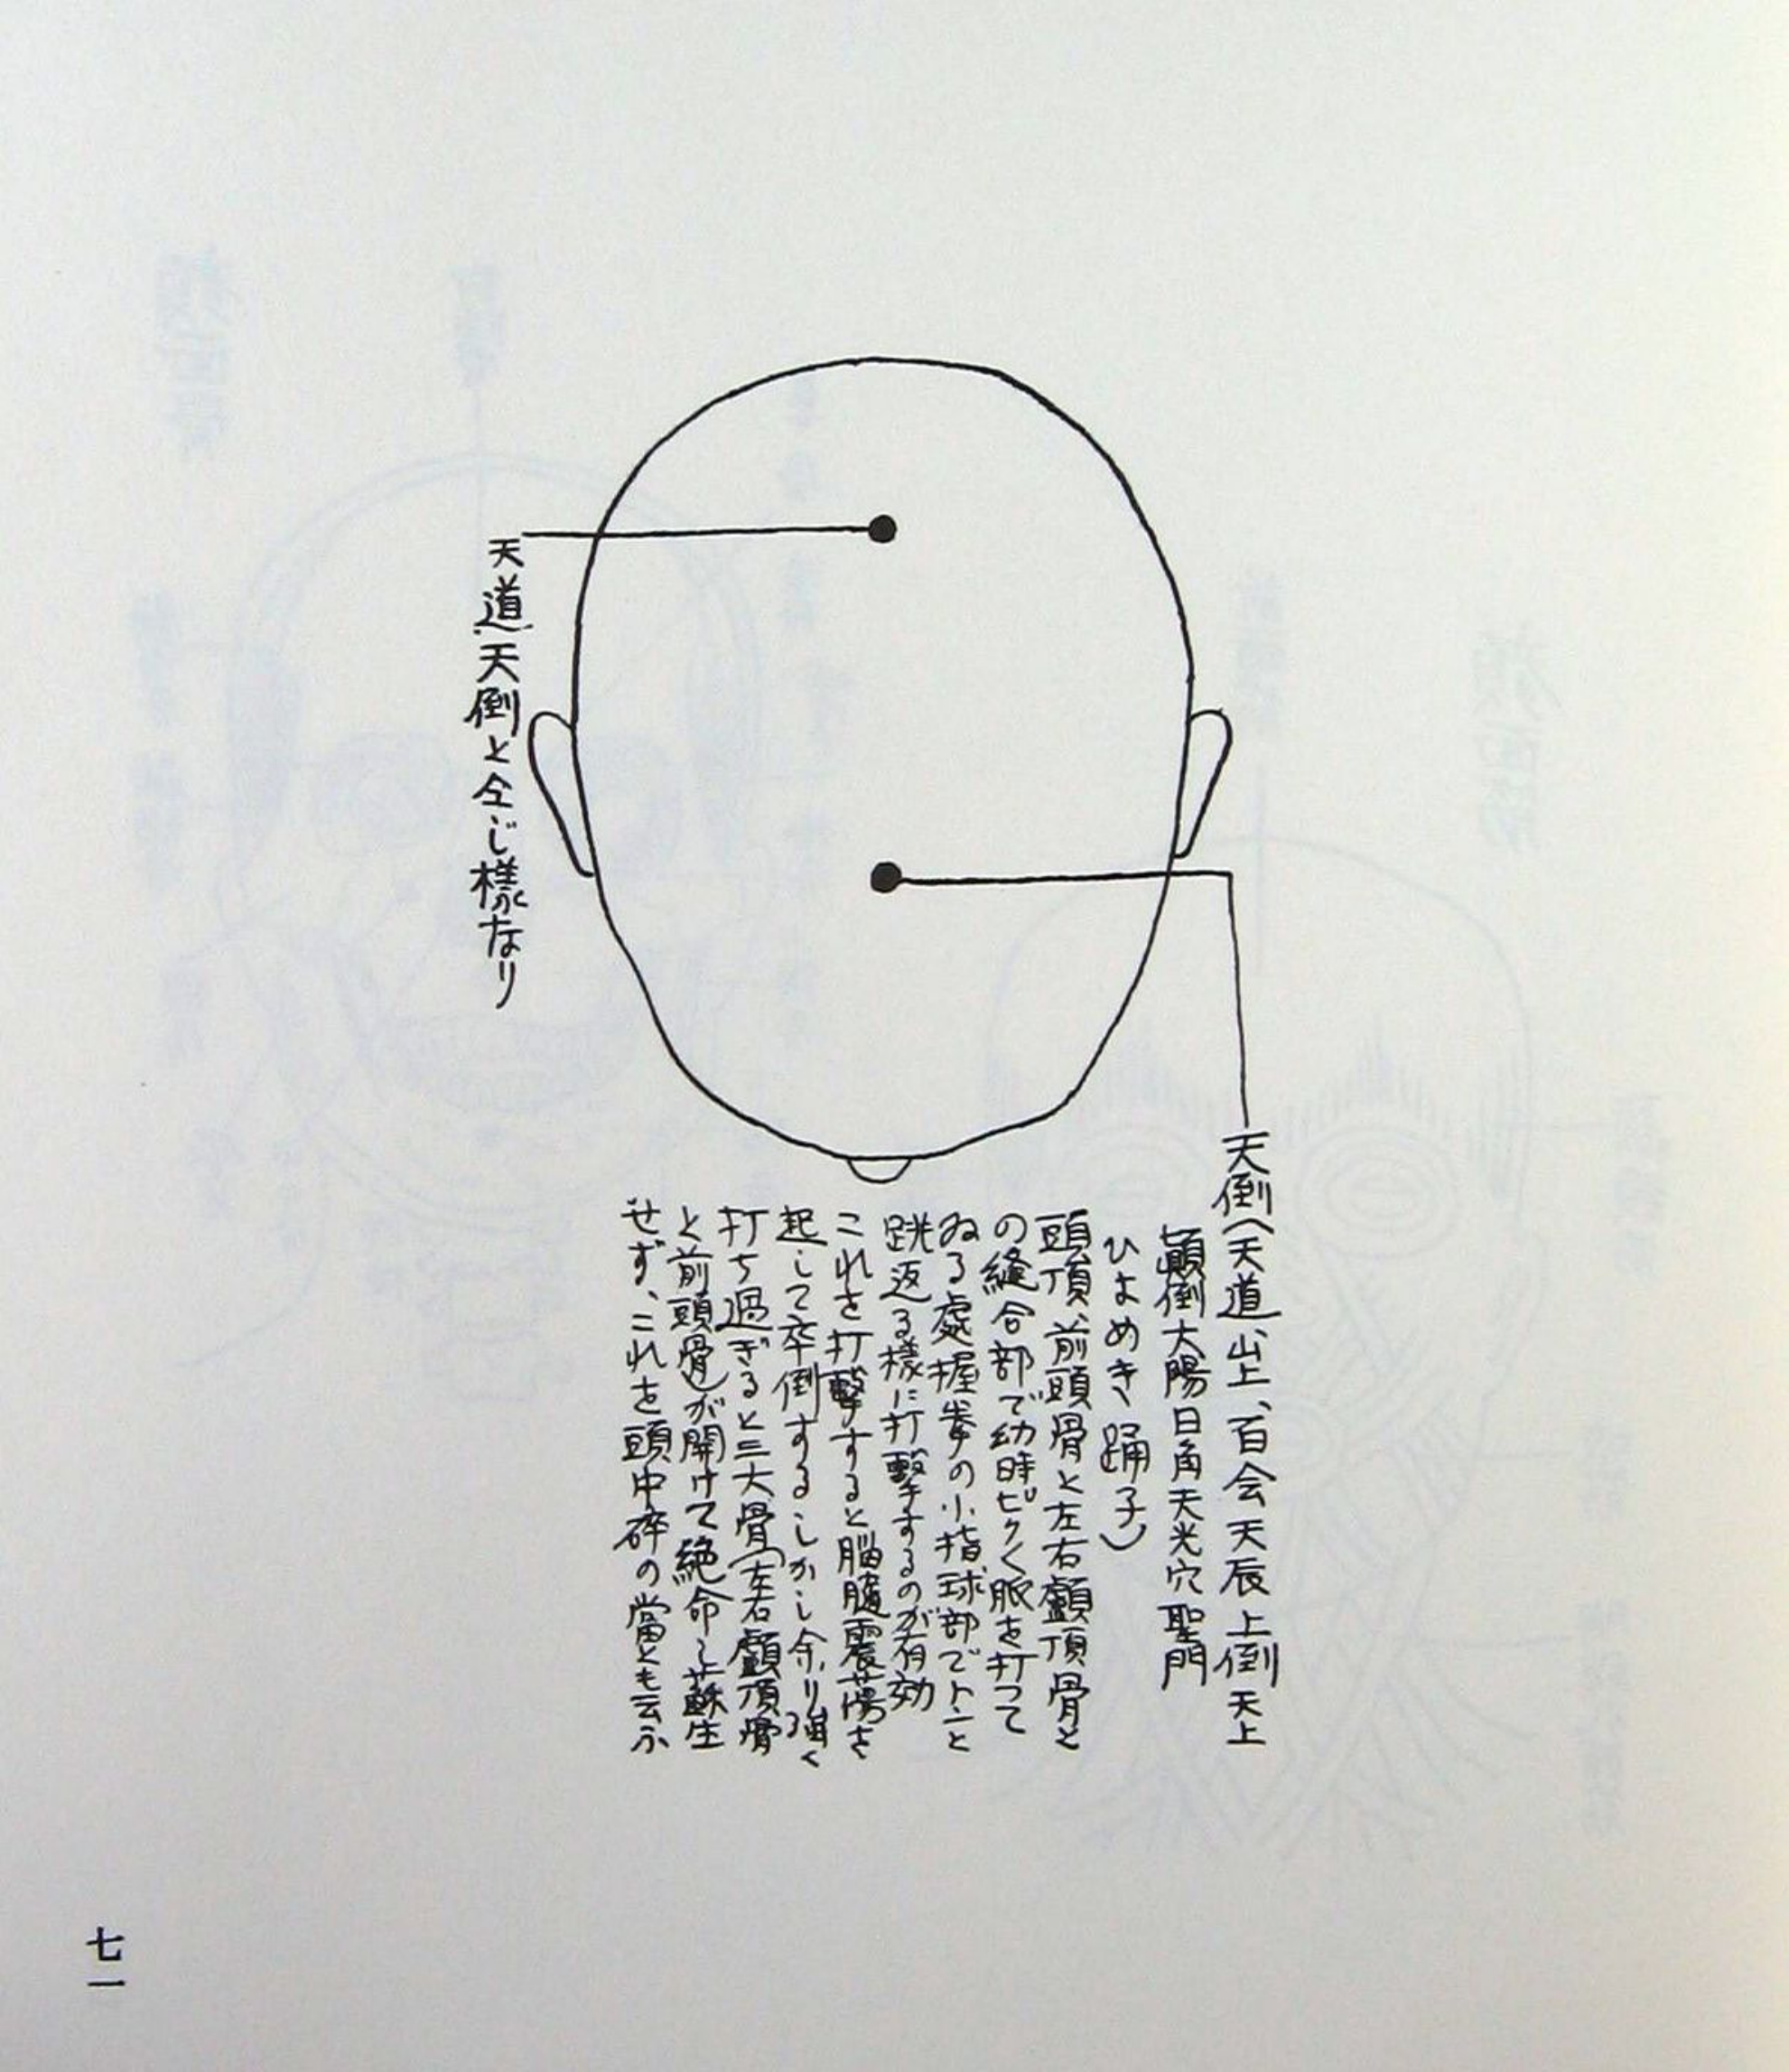 天倒(天道、山上、百会天辰上倒天上
顛倒大陽日角天光穴聖門
ひよめき踊子)
頭頂、前頭骨と左右顱頂骨と
の縫合部で幼時ピク〱脈を打って
ゐる處握拳の小指球部でトンと
跳返る様に打撃するのが有効
これを打撃すると脳髄震蕩を
起して卒倒するしかし余り強く
打ち過ぎると三大骨(左右顱頂骨
と前頭骨)が開けて絶命し蘇生
せず、これを頭中砕の當とも云ふ
天道 天倒と仝じ様なり
七一